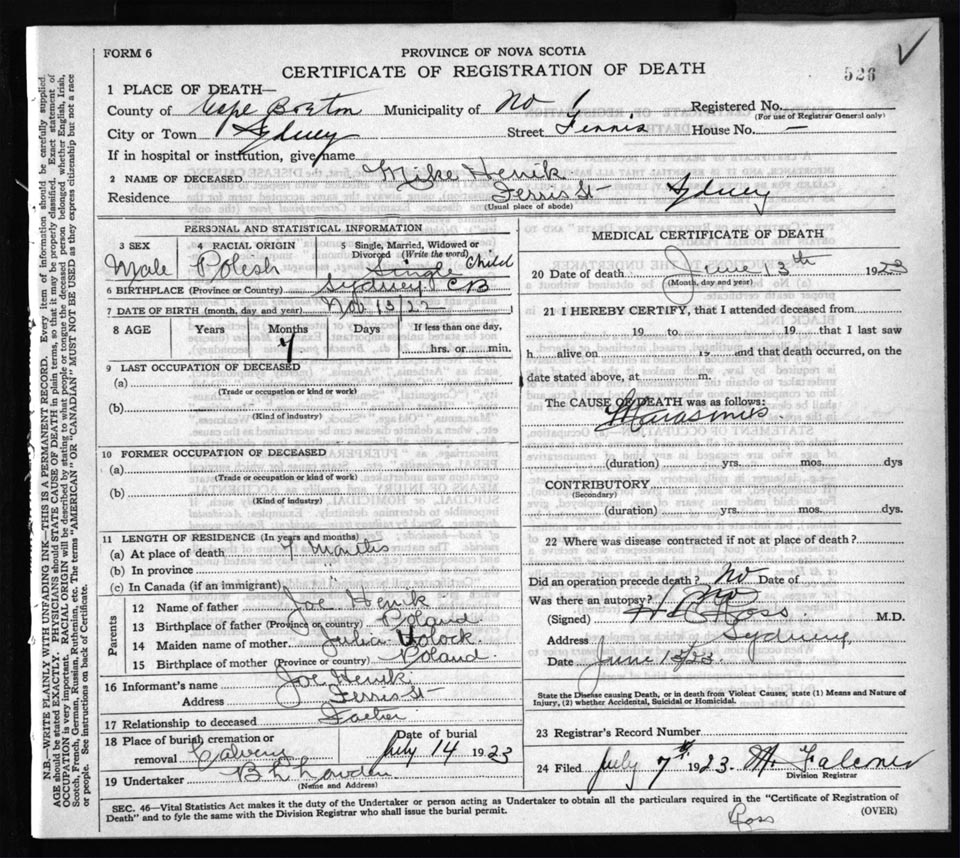 FORM 6
PROVINCE OF NOVA SCOTIA
CERTIFICATE OF REGISTRATION OF DEATH
526
1 PLACE OF DEATH—
County of Cape Breton Municipality of No 1 Registered No.
(For use of Registrar General only)
City or Town Sydney Street Ferris House No. —
If in hospital or institution, give name
2 NAME OF DECEASED Mike Henik
Residence Ferris St Sydney
(Usual place of abode)
PERSONAL AND STATISTICAL INFORMATION
3 SEX Male
4 RACIAL ORIGIN Polesh
5 Single, Married, Widowed or Divorced (Write the word) Single Child
6 BIRTHPLACE (Province or Country) Sydney CB
7 DATE OF BIRTH (month, day and year) Nov 13/22
8 AGE Years Months Days If less than one day,
7 hrs. or min.
9 LAST OCCUPATION OF DECEASED
(a)
(Trade or occupation or kind or work)
(b)
(Kind of industry)
10 FORMER OCCUPATION OF DECEASED
(a)
(Trade or occupation or kind or work)
(b)
(Kind of industry)
11 LENGTH OF RESIDENCE (In years and months)
(a) At place of death 7 Months
(b) In province
(c) In Canada (if an immigrant)
Parents
12 Name of father Joe Henik
13 Birthplace of father (Province or country) Poland
14 Maiden name of mother Julia
15 Birthplace of mother (Province or country) Poland
16 Informant's name Joe Henik
Address Ferris St
17 Relationship to deceased Father
18 Place of burial cremation or removal Calvery Date of burial July 14 1923
19 Undertaker
(Name and Address)
MEDICAL CERTIFICATE OF DEATH
20 Date of death June 13th 1923
(Month, day and year)
21 I HEREBY CERTIFY, that I attended deceased from
19 to 19 that I last saw
h alive on 19 and that death occurred, on the
date stated above, at m.
The CAUSE OF DEATH was as follows:
Marasmus
(duration) yrs. mos. dys
CONTRIBUTORY
(Secondary)
(duration) yrs. mos. dys.
22 Where was disease contracted if not at place of death?
Did an operation precede death? No Date of
Was there an autopsy? No
(Signed) Ross M.D.
Address Sydney
Date June 23
State the Disease causing Death, or in death from Violent Causes, state (1) Means and Nature of
Injury, (2) whether Accidental, Suicidal or Homicidal.
23 Registrar's Record Number
24 Filed July 7th 1923. M. Falconer
Division Registrar
SEC. 46—Vital Statistics Act makes it the duty of the Undertaker or person acting as Undertaker to obtain all the particulars required in the "Certificate of Registration of
Death" and to fyle the same with the Division Registrar who shall issue the burial permit.
Ross
(OVER)
N.B.—WRITE PLAINLY WITH UNFADING INK—THIS IS A PERMANENT RECORD. Every item of information should be carefully supplied.
AGE should be stated EXACTLY. PHYSICIANS should STATE CAUSE OF DEATH in plain terms, so that it may be properly classified. Exact statement of
OCCUPATION is very important. RACIAL ORIGIN will be described by stating to what people or tongue the deceased person belonged whether English, Irish,
Scotch, French, German, Russian, Ruthenian, etc. The terms "AMERICAN" OR "CANADIAN" MUST NOT BE USED as they express citizenship but not a race
or people. See instructions on back of Certificate.